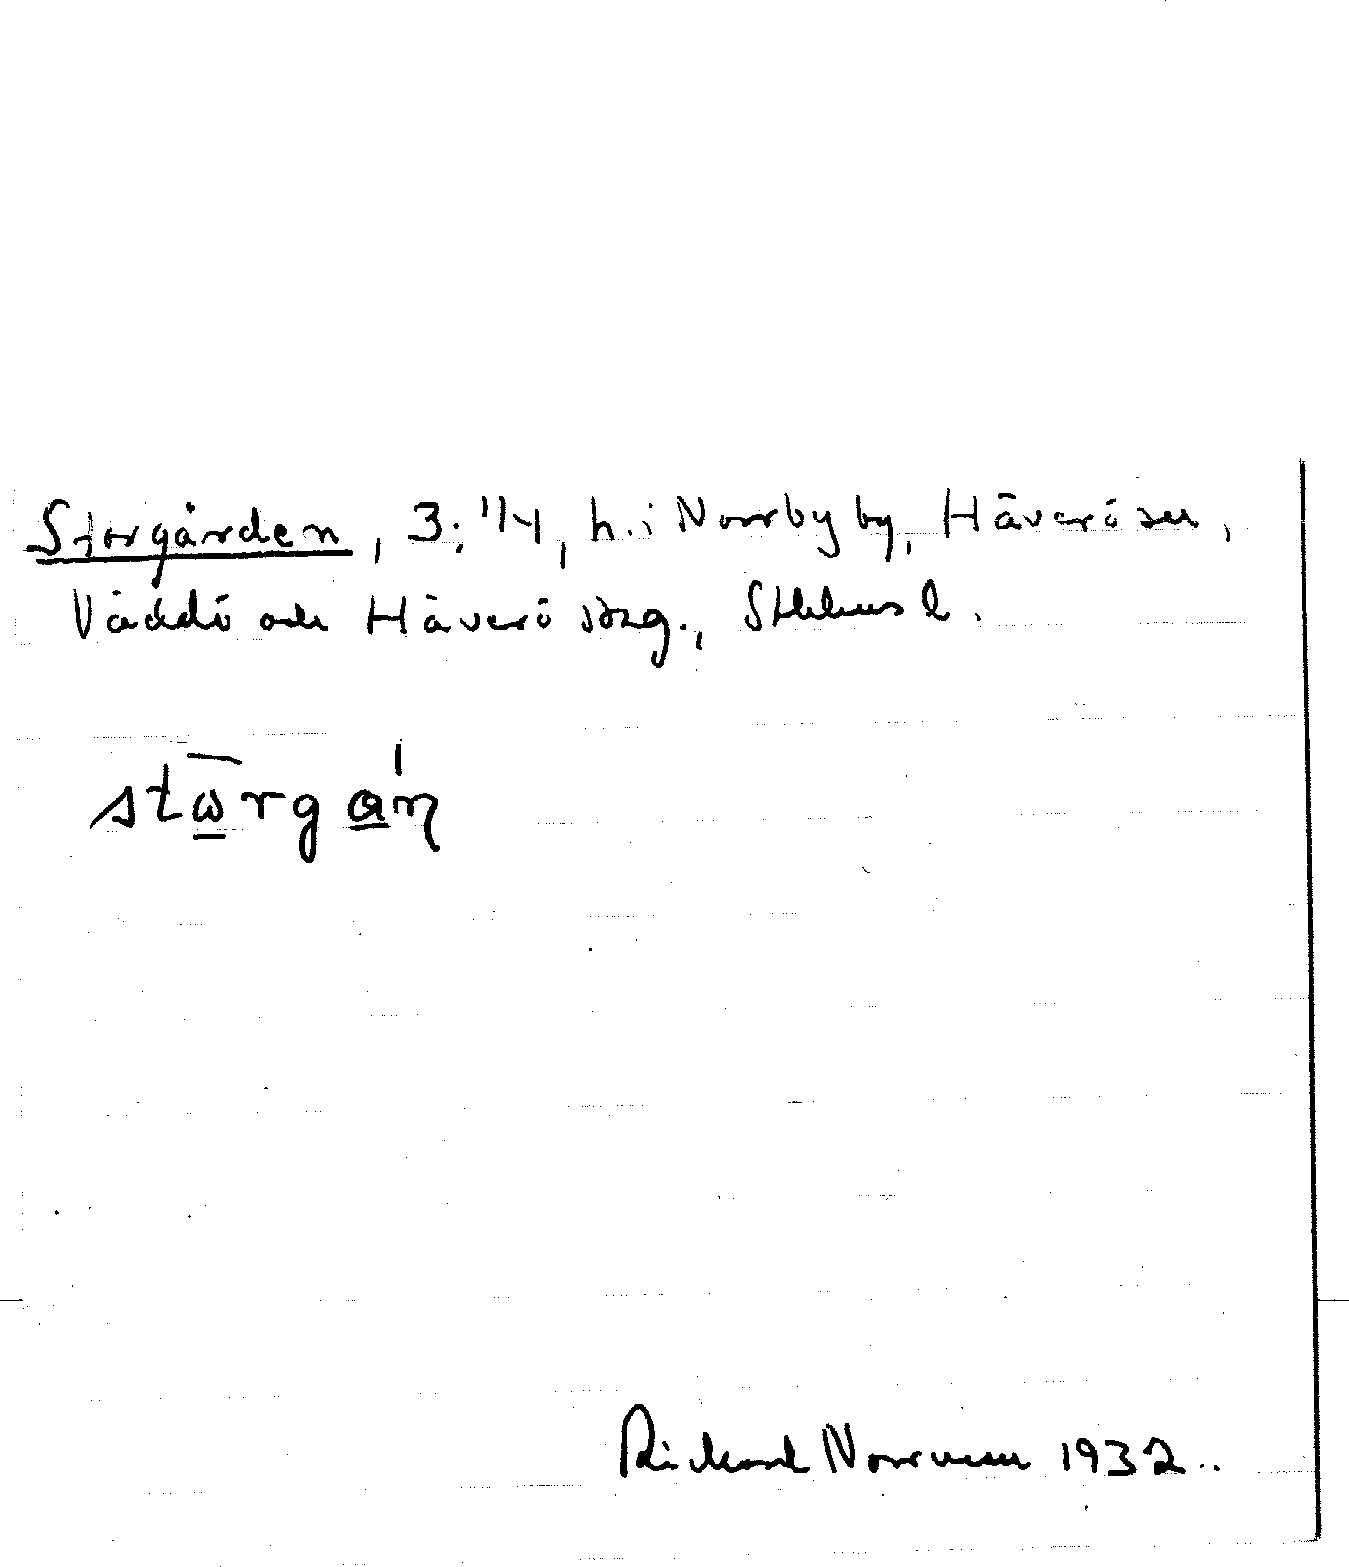 Storgården, 3: 1/4, h. i Norrby by, Häverö sn,
Väddö och Häverö skg., Sthlms l.
stω̱̄rga̱ŋ́
Rickard Norrman 1932.